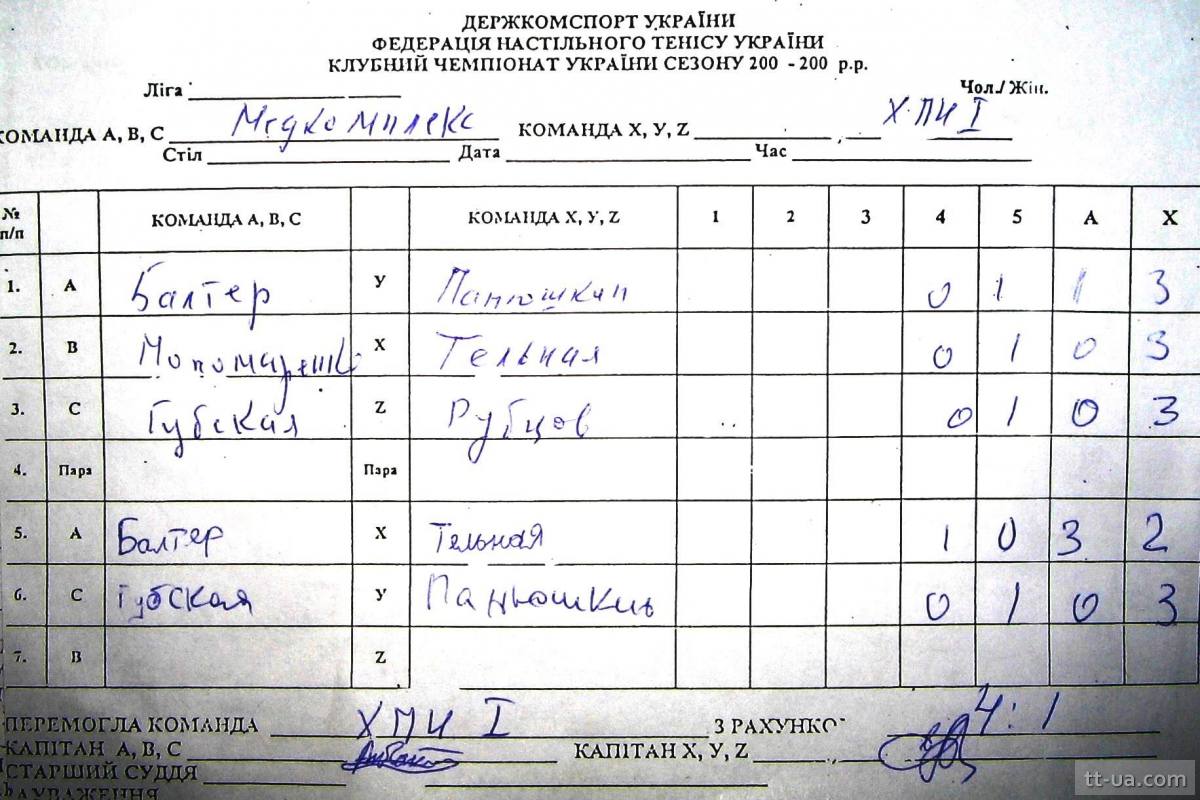 ДЕРЖКОМСПОРТ УКРАЇНИ
ФЕДЕРАЦІЯ НАСТІЛЬНОГО ТЕНІСУ УКРАЇНИ
КЛУБНИЙ ЧЕМПІОНАТ УКРАЇНИ СЕЗОНУ 200 - 200 р.р.
Ліга Чол./ Жін.
КОМАНДА А, В, С Медкомплекс КОМАНДА Х, У, Z ХПИ I
Стіл Дата Час
№ п/п КОМАНДА А, В, С КОМАНДА Х, У, Z 1 2 3 4 5 А Х
1. А Балтер У Панюшкин 0 1 1 3
2. В Х Тельная 0 1 0 3
3. С Губская Z Рубцов 0 1 0 3
4. Пара Пара
5. А Балтер Х Тельная 1 0 3 2
6. С Губская У Панюшкин 0 1 0 3
7. В Z
ПЕРЕМОГЛА КОМАНДА ХПИ I З РАХУНКО 4:1
КАПІТАН А, В, С КАПІТАН Х, У, Z
СТАРШИЙ СУДДЯ
АУВАЖЕННЯ
tt-ua.com